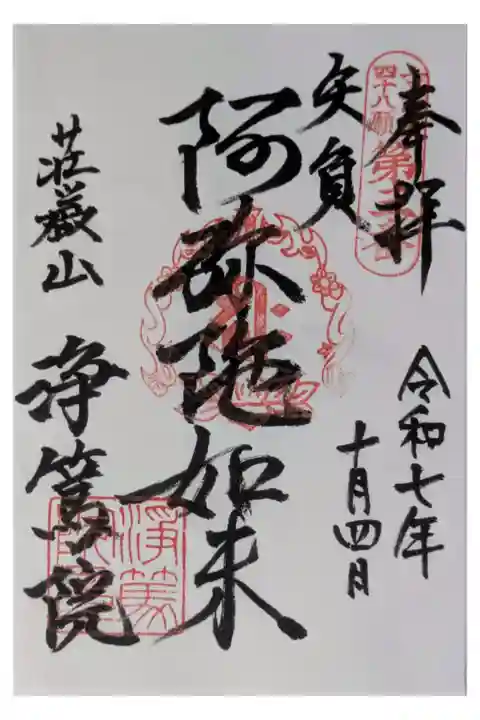 奉拝
令和七年
十月四月
矢負
阿弥陀如来
荘厳山
浄篤院
四十八願
第二番
浄篤院